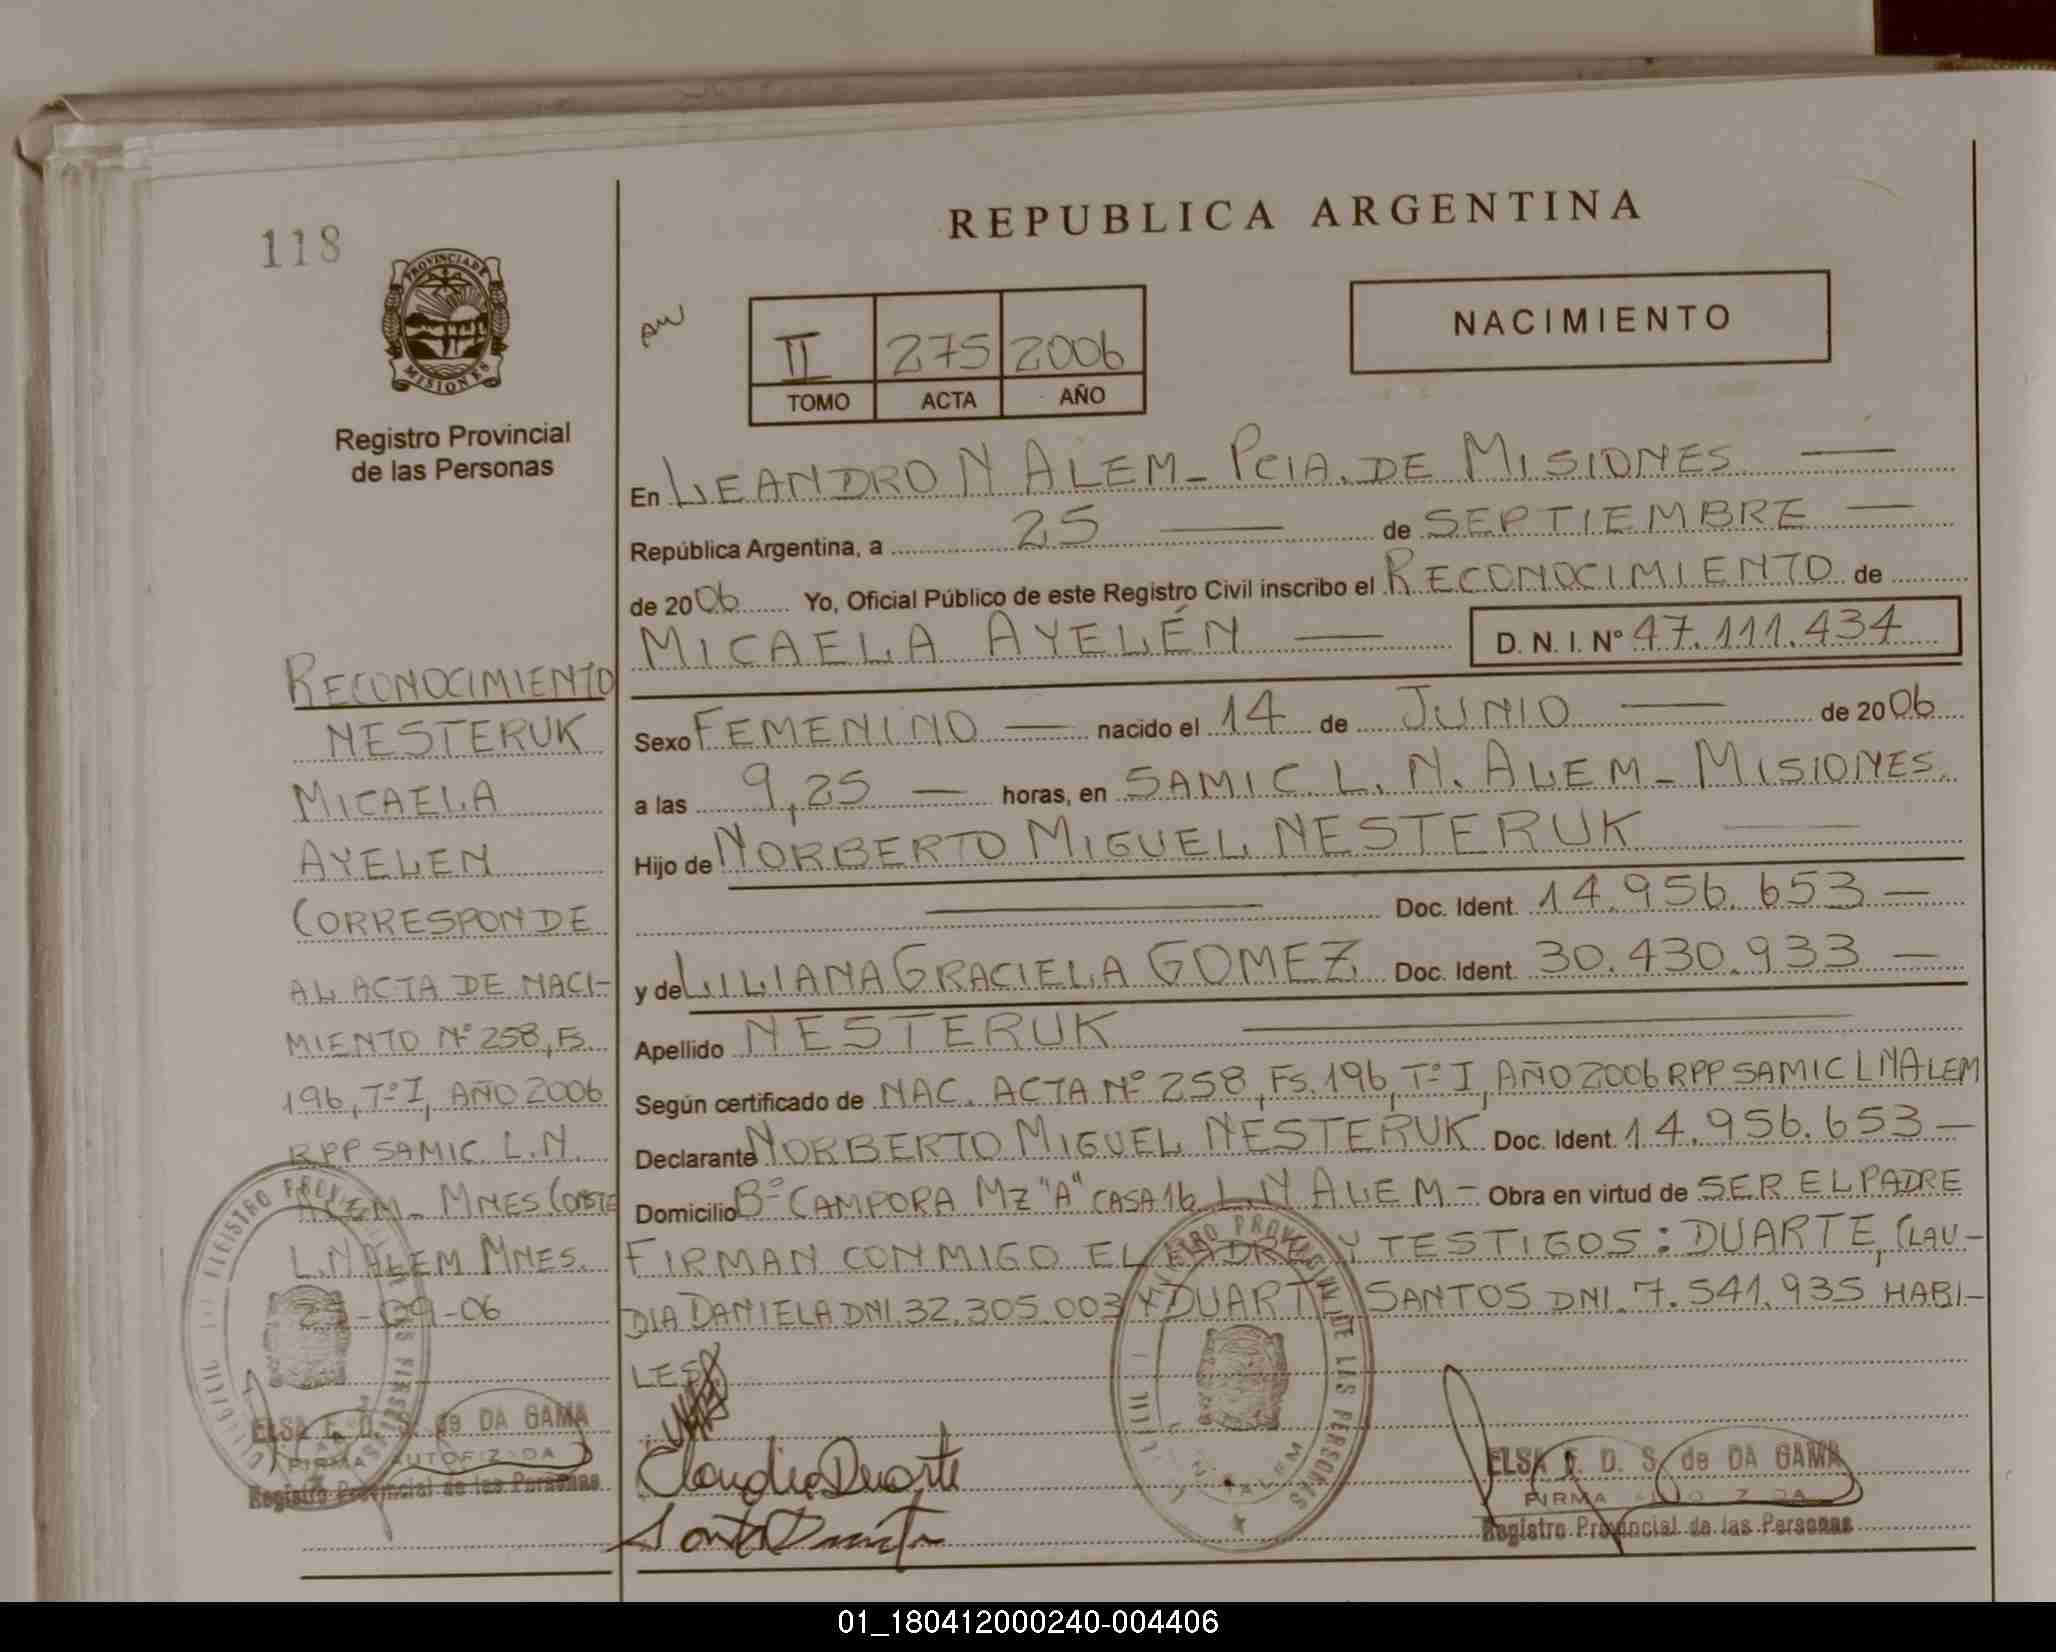 118
REPUBLICA ARGENTINA
PROVINCIA DE
MISIONES
Registro Provincial
de las Personas
II 275 2006
TOMO ACTA AÑO
NACIMIENTO
En LEANDRO N ALEM - PCIA. DE MISIONES
República Argentina, a 25 de SEPTIEMBRE
de 2006 Yo, Oficial Público de este Registro Civil inscribo el RECONOCIMIENTO de
MICAELA AYELÉN D. N. I. Nº 47.111.434
Sexo FEMENINO nacido el 14 de JUNIO de 2006
a las 9,25 horas, en SAMIC L. N. ALEM - MISIONES
Hijo de NORBERTO MIGUEL NESTERUK
Doc. Ident. 14.956.653
y de LILIANA GRACIELA GOMEZ Doc. Ident. 30.430.933
Apellido NESTERUK
Según certificado de NAC. ACTA Nº 258, FS. 196, Tº I, AÑO 2006 RPP SAMIC L N ALEM
Declarante NORBERTO MIGUEL NESTERUK Doc. Ident. 14.956.653
Domicilio Bº CAMPORA MZ "A" CASA 16 L. N ALEM - Obra en virtud de SER EL PADRE
FIRMAN CONMIGO EL PADRE Y TESTIGOS: DUARTE, CLAU-
DIA DANIELA DNI. 32.305.003 Y DUARTE SANTOS DNI. 7.541.935 HABI-
LES
Claudia Duarte
ELSA E. D. S. de DA GAMA
FIRMA AUTORIZADA
Registro Provincial de las Personas
RECONOCIMIENTO
NESTERUK
MICAELA
AYELEN
CORRESPONDE
AL ACTA DE NACI-
MIENTO Nº 258, FS.
196, Tº I, AÑO 2006
RPP SAMIC. L. N.
ALEM - MNES CONSTE
L. N ALEM MNES.
25-09-06
ELSA E. D. S. de DA GAMA
FIRMA AUTORIZADA
Registro Provincial de las Personas
01_180412000240-004406